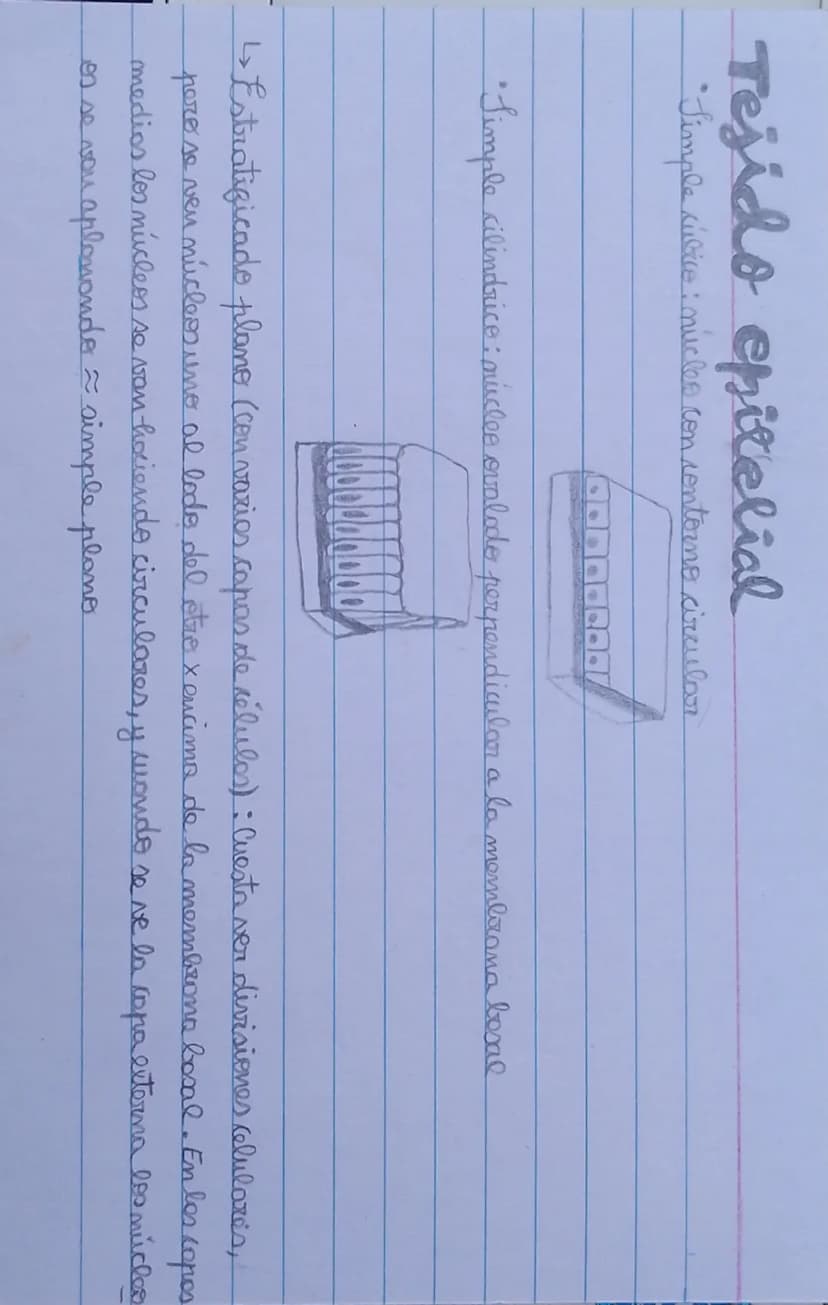 Tejido epitelial
• Simple cúbico: núcleo con contorno circular
• Simple cilíndrico: núcleo ovalado perpendicular a la membrana basal
↳ Estratificado plano (con varias capas de células): Cuesta ver divisiones celulares,
pero se ven núcleos uno al lado del otro x encima de la membrana basal. En las capas
medias los núcleos se van haciendo circulares, y cuando se ve la capa externa los núcleo
os se van aplanando ≈ simple plano